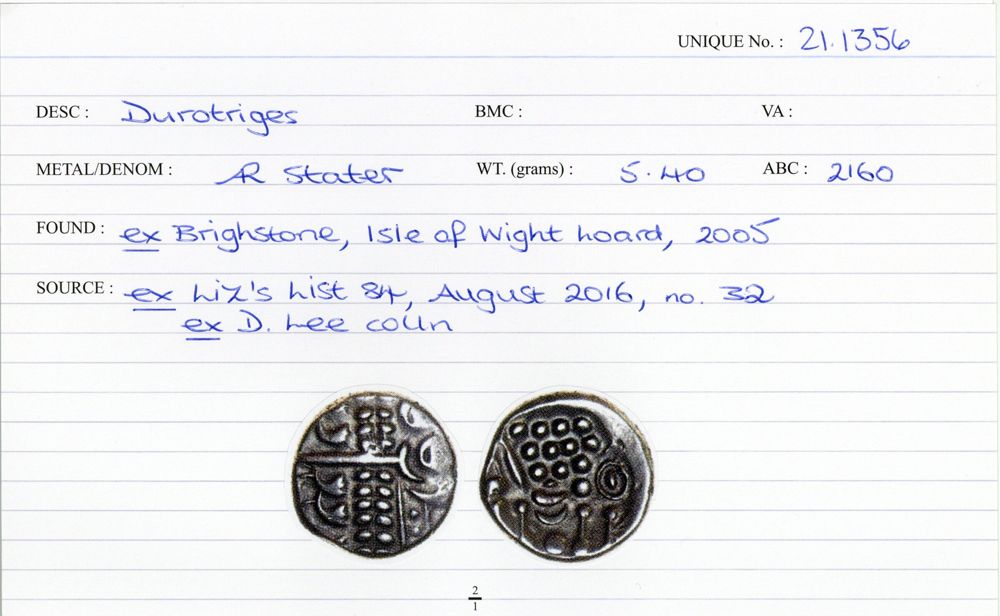 UNIQUE No. : 21.1356
DESC : Durotriges BMC : VA :
METAL/DENOM : AR Stater WT. (grams) : 5.40 ABC : 2160
FOUND : ex Brighstone, Isle of Wight hoard, 2005
SOURCE : ex Liz's List 84, August 2016, no. 32
ex D. Lee colln
2
1